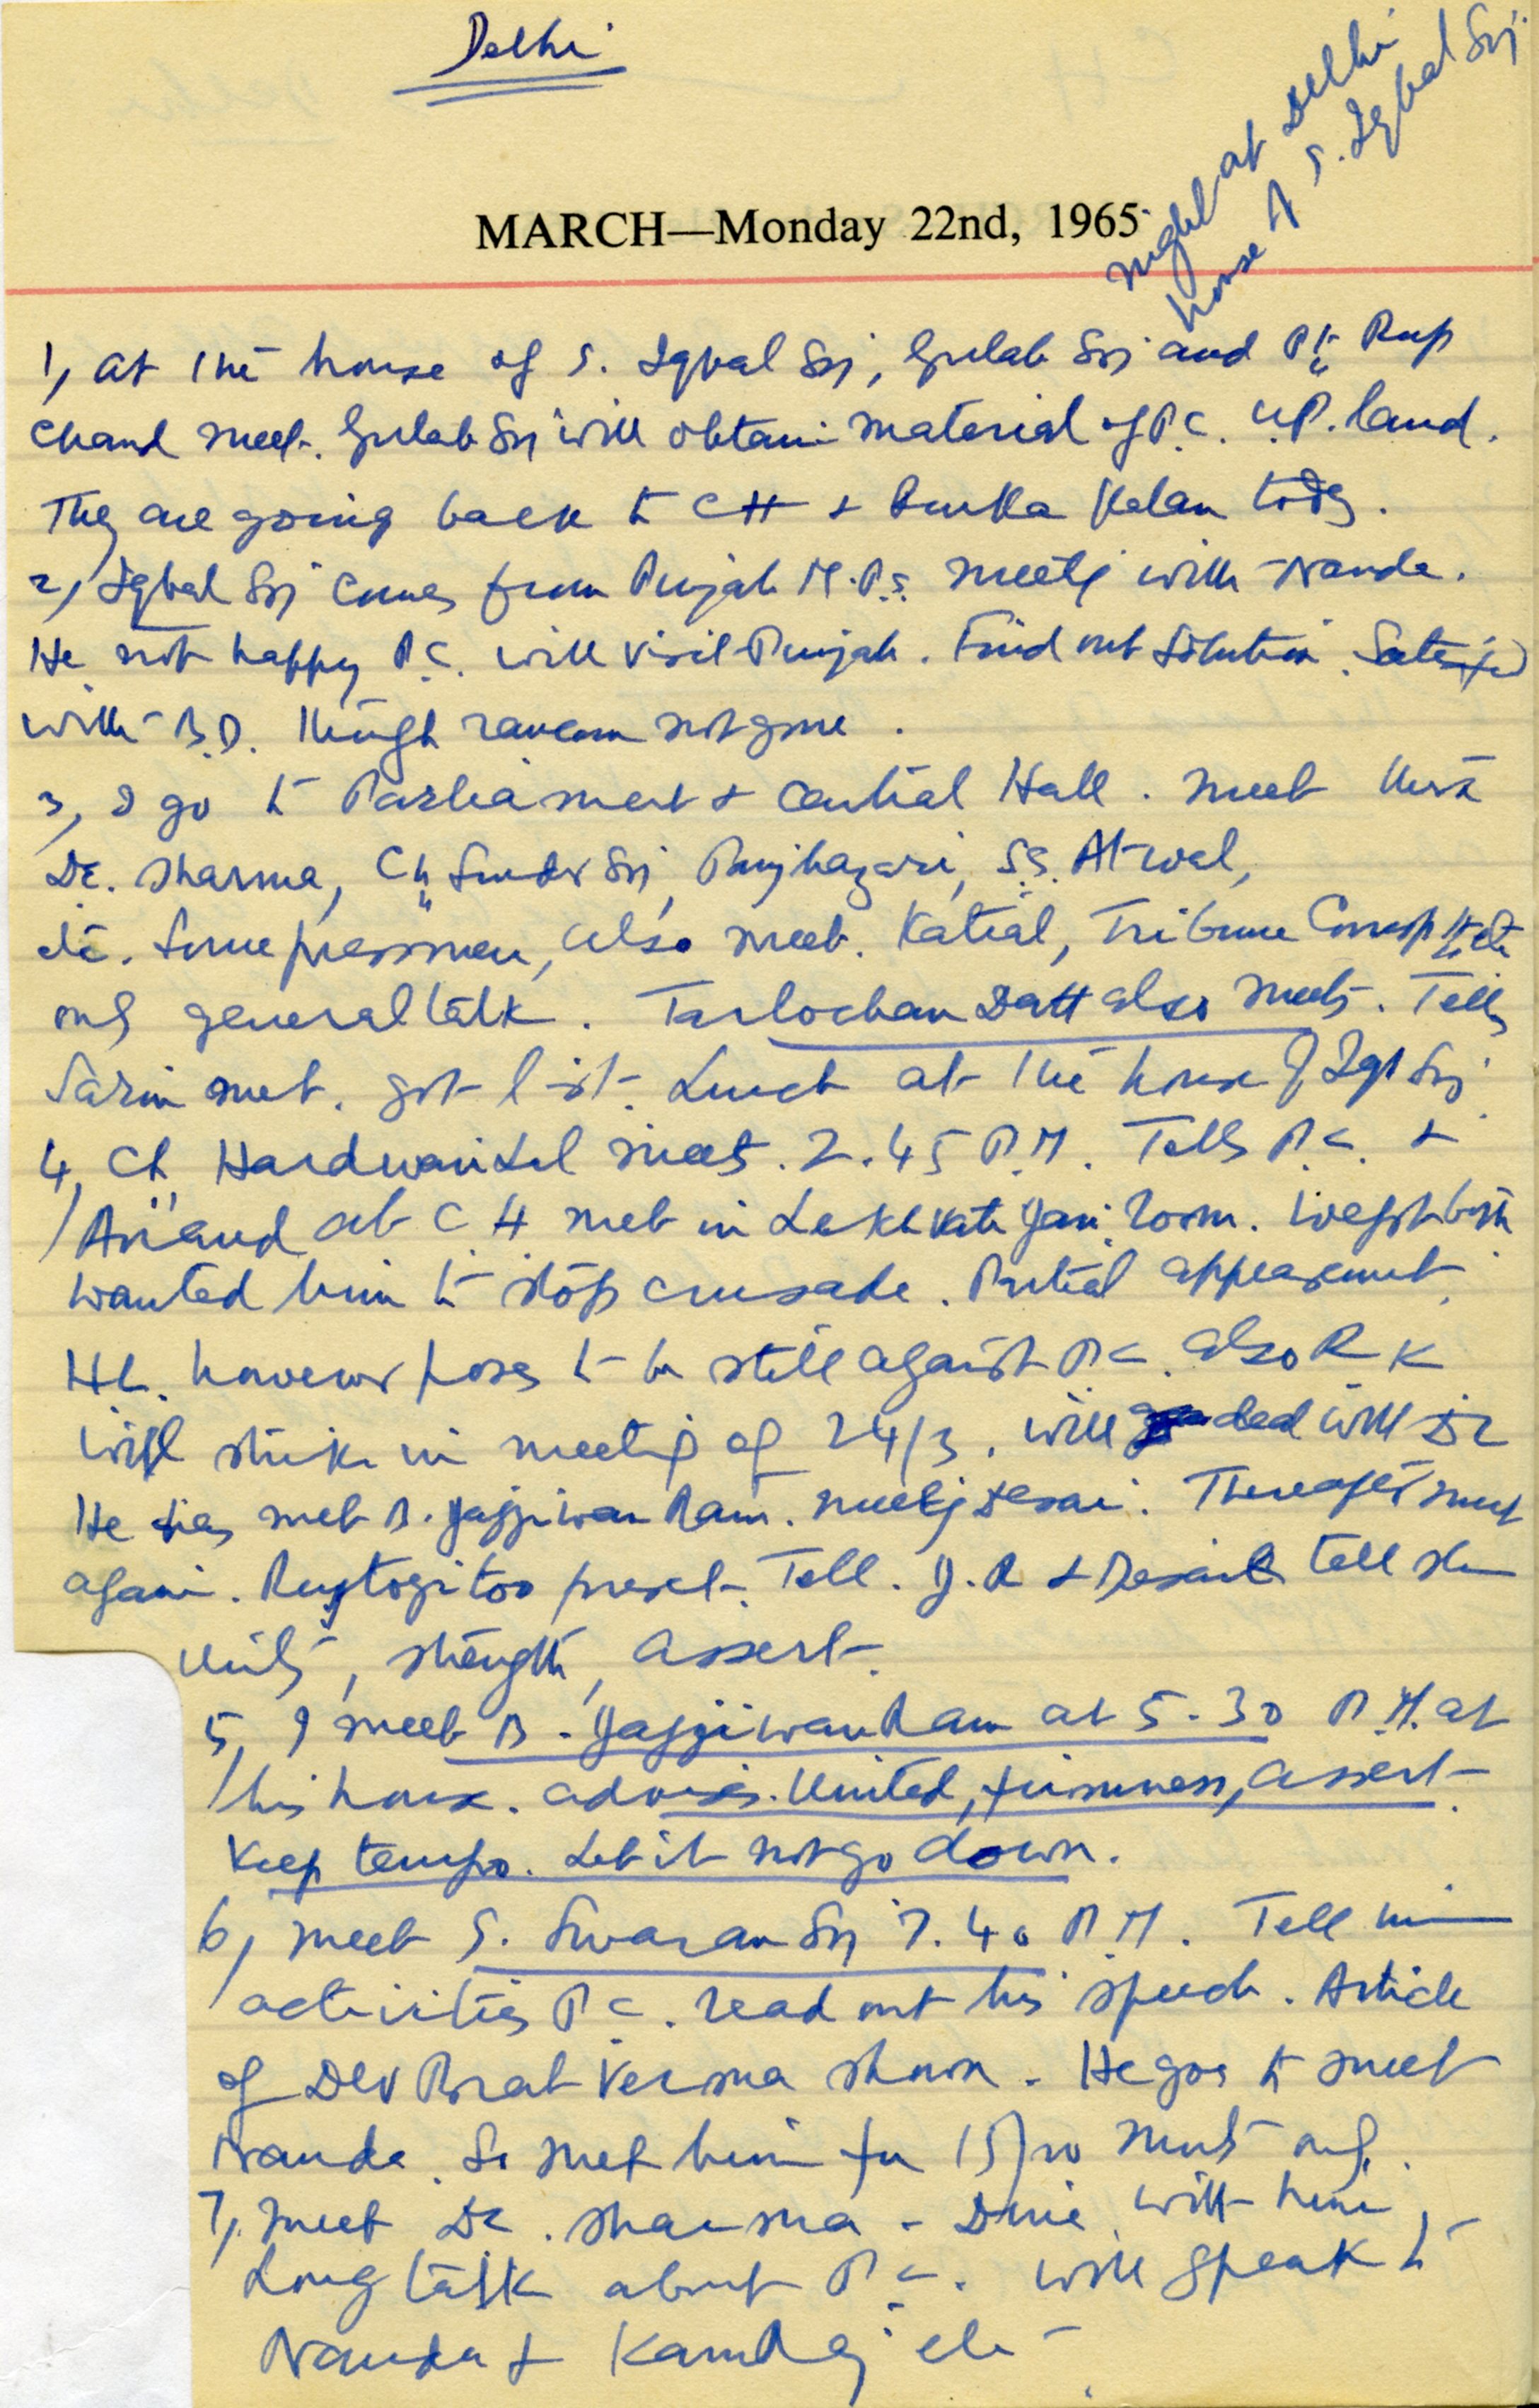 Delhi
Night at Delhi
house of S. Iqbal Sgj.
MARCH—Monday 22nd, 1965
1, At the house of S. Iqbal Sgj, Gulab Sgj and Pt. Rup
Chand meet. Gulab Sgj will obtain material of P.C. U.P. land.
They are going back to CH + Kalan today.
2, Iqbal Sgj comes from Punjab M.P.s. meetg with Nanda.
He not happy P.C. will visit Punjab. Find out solution. Satisfied
with B.D. though not gone.
3, I go to Parliament + Central Hall. Meet there
Dr. Sharma, Ch. Sunder Sgj, Punjhazari, S.S. Atwal,
etc. Some pressmen, also meet. Katial, Tribune Corresp
only general talk. Tarlochan Datt also meets. Tells
Sarin met. got list. Lunch at the house of Iqbl Sgj
4, Ch. Hardwari Lal meets. 2.45 P.M. Tells P.C. +
Anand at CH met in Lekhvati Jain room. both
wanted him to stop crusade. Partial appeasement.
He however poses to be still against P.C. also R K
will strike in meeting of 24/3. will lead with
He has met B. Jagjiwan Ram. meetg Desai. Thereafter meet
again. Rustogi too present. Tell. J.R + Desai to tell
Unity, strength, assert.
5, I meet B. Jagjiwan Ram at 5.30 P.M. at
his house. advises. United, firmness, assert.
Keep tempo. Let it not go down.
6, Meet S. Swaran Sgj 7.40 P.M. Tell him
activities P.C. read out his speech. Article
of Dev Brat Verma shown. He goes to meet
Nanda. So met him for 15/20 mnts only.
7, Meet Dr. Sharma - Dine with him,
Long talk about P.C. will speak to
Nanda + Kamraj etc